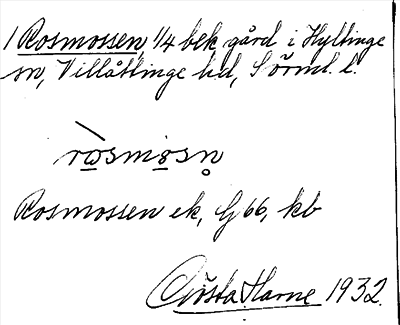 1 Rosmossen, 1/4 bek. gård i Hyltinge
sn, Villåttinge hd, Sörml. l.
ròsmosn̥
Rosmossen ek, G 66, kb
Gösta Harne 1932.